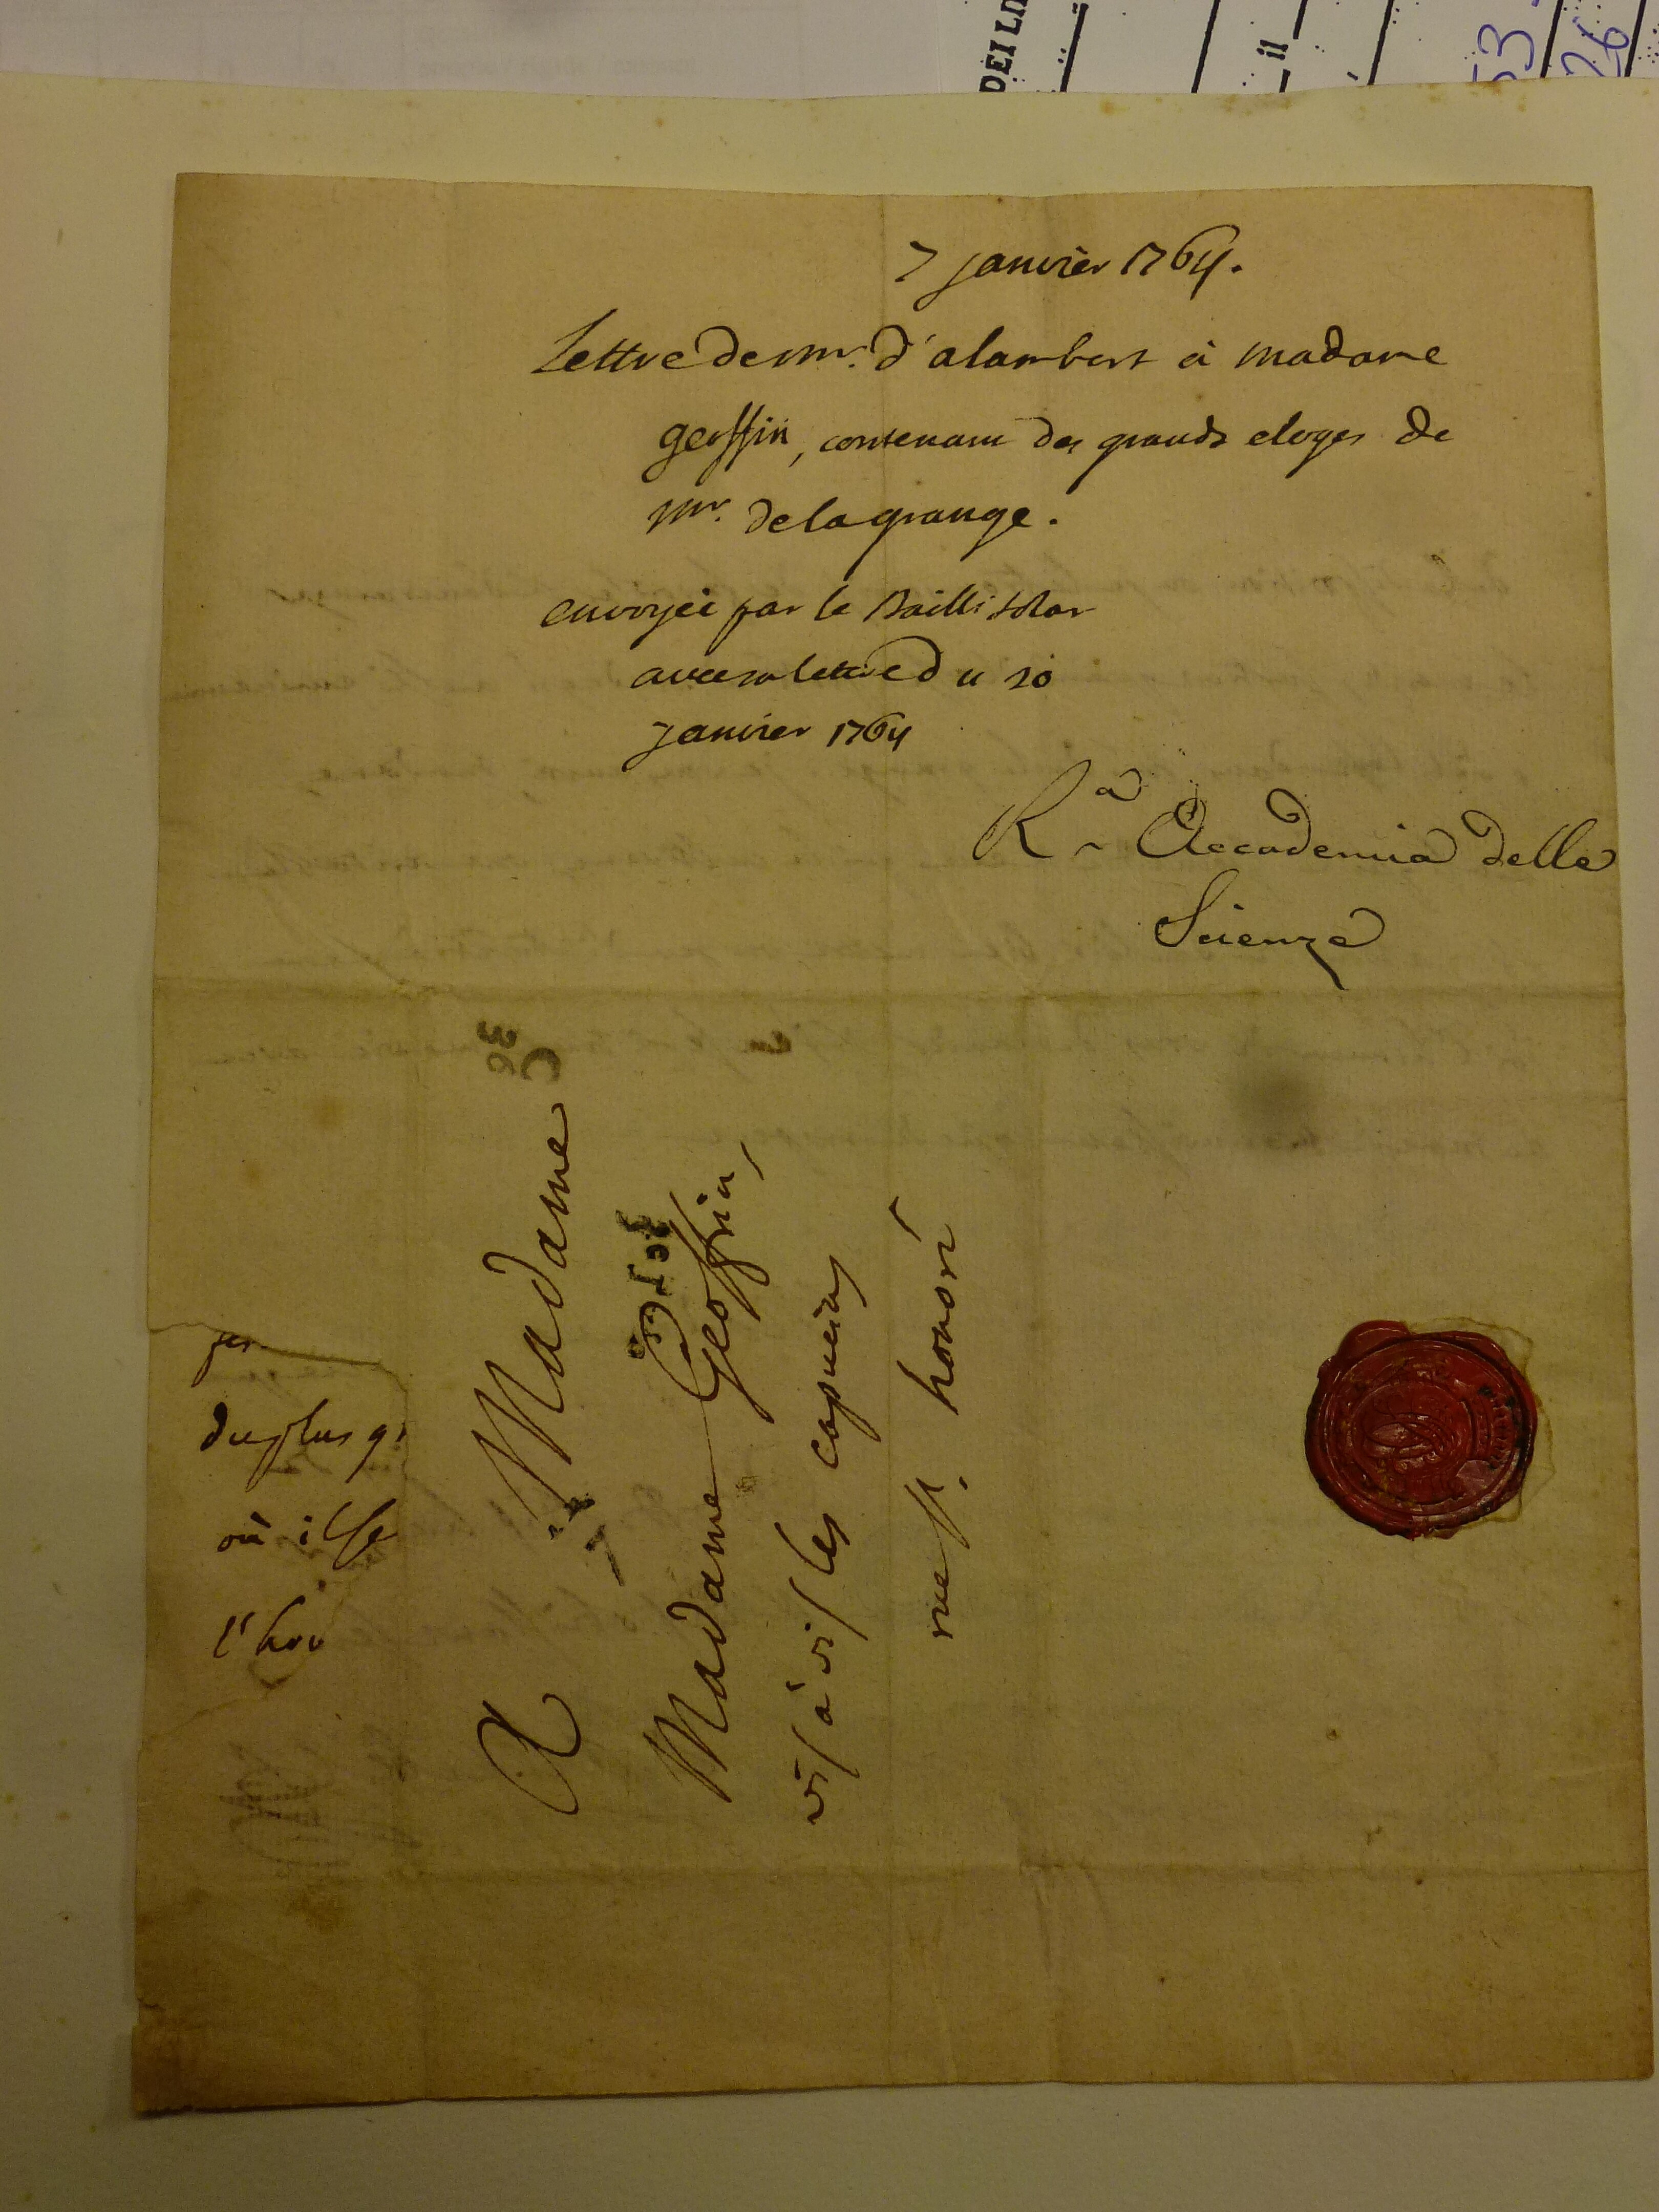 7 janvier 1764.
Lettre de mr. d'alambert à madame
geoffrin, contenant des grands eloges de
mr. de la grange.
envoyée par le Bailli Solar
avec sa lettre du 10
janvier 1764
R.a Accademia delle
Scienze
A Madame
Madame Geoffrin,
vis à vis les capucins
rue St. honoré
du plus gr
où il se
l'ho